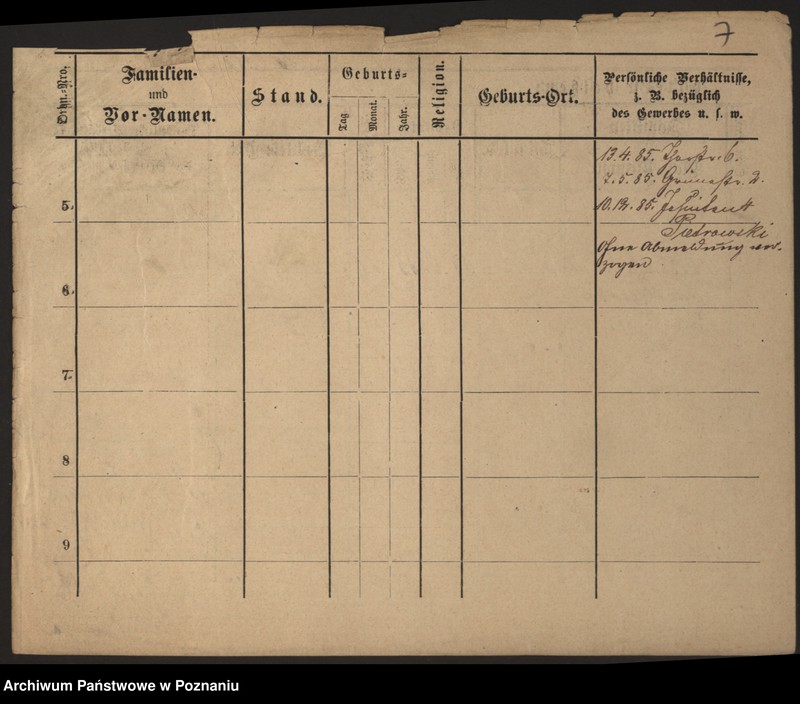 7
Ordn.-Nro.
Familien-
und
Vor-Namen.
Stand.
Geburts-
Tag.
Monat.
Jahr.
Religion.
Geburts-Ort.
Persönliche Verhältnisse,
z. B. bezüglich
des Gewerbes u. s. w.
13.4.85. Thorstr. 6.
7.5.85. Grünestr. 2.
5.
10.12.85.
Pietrowski
ohne Abmeldung ver-
zogen
6.
7.
8
9
Archiwum Państwowe w Poznaniu